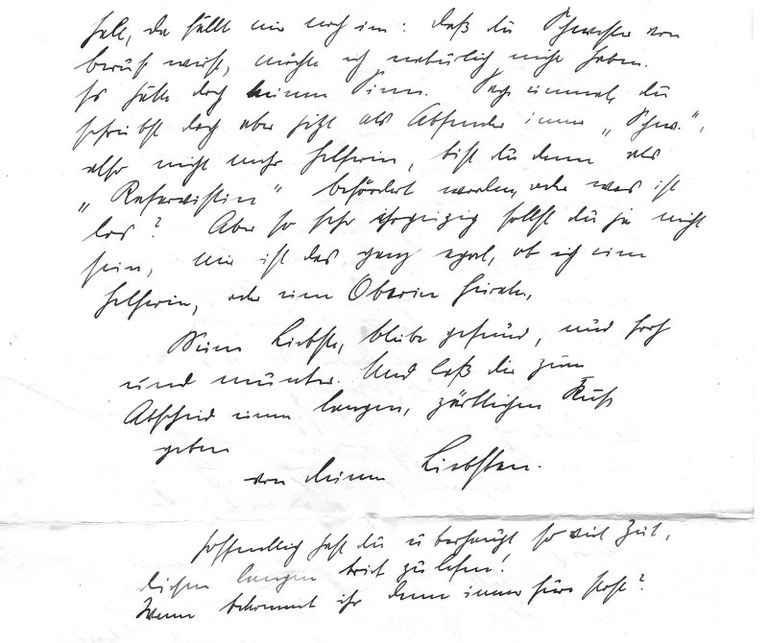 Halt, da fällt mir noch ein: daß du Schwester von
Beruf wirst, möchte ich natürlich nicht haben.
Es hätte doch keinen Sinn. Sag einmal, du
schreibst doch aber jetzt als Absender immer „Schw.",
also nicht mehr Helferin, bist du denn als
„Reservistin" befördert worden, oder was ist
los? Aber so sehr ehrgeizig sollst du ja nicht
sein, mir ist das ganz egal, ob ich eine
Helferin, oder eine Oberin heirate.
Meine Liebste, bleibe gesund, und froh
und munter. Und laß dir zum
Abschied einen langen, zärtlichen Kuß
geben
von deinem Liebsten.
Hoffentlich hast du überhaupt so viel Zeit,
diesen langen Brief zu lesen!
Wann bekommt ihr denn immer eure Post?